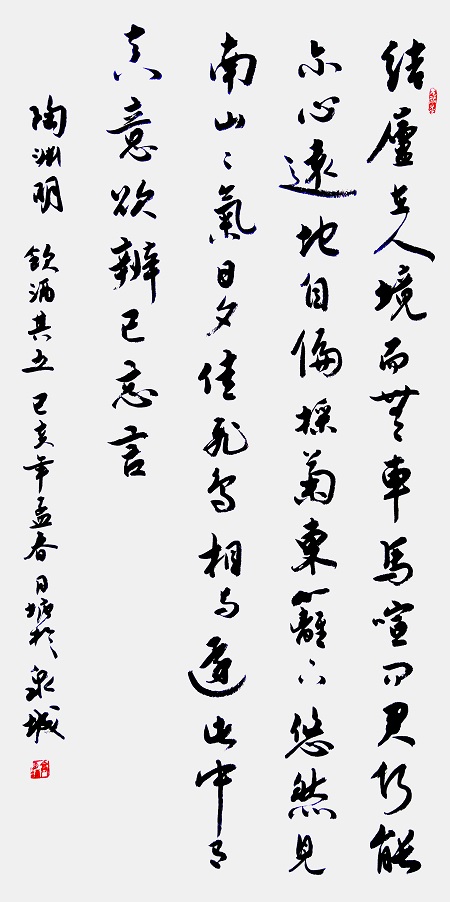 結廬在人境而無車馬喧問君何能
尔心遠地自偏採菊東籬下悠然見
南山〻氣日夕佳飛鳥相与還此中有
真意欲辨已忘言
陶渊明 飲酒其五 己亥年孟春日於泉城